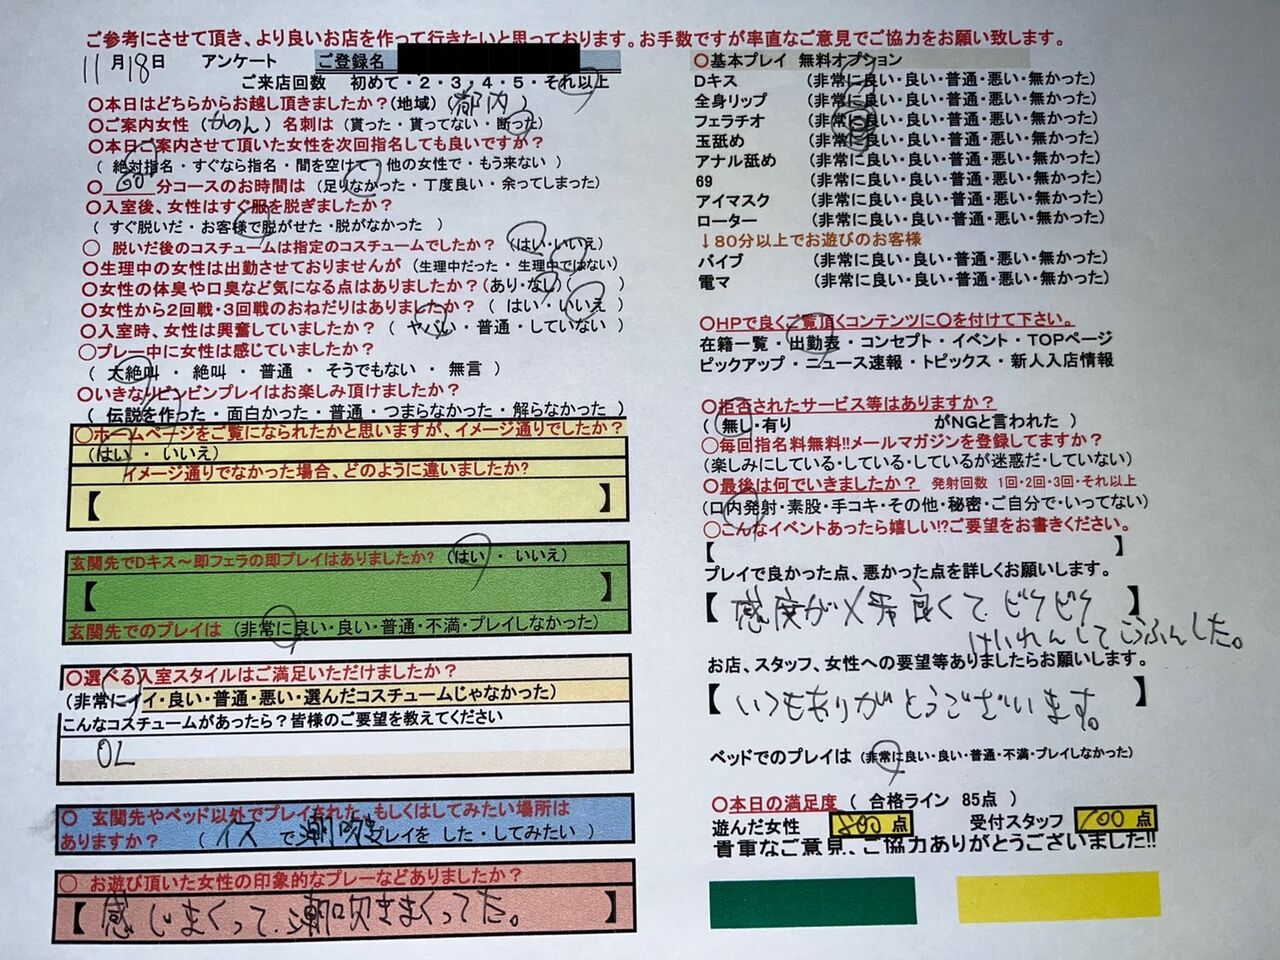 ご参考にさせて頂き、より良いお店を作って行きたいと思っております。お手数ですが率直なご意見でご協力をお願い致します。
11月18日 アンケート ご登録名
ご来店回数 初めて・2・3・4・5・それ以上
〇本日はどちらからお越し頂きましたか?(地域)(都内)
〇ご案内女性(かのん)名刺は(貰った・貰ってない・断った)
〇本日ご案内させて頂いた女性を次回指名しても良いですか?
(絶対指名・すぐなら指名・間を空けて・他の女性で・もう来ない)
〇 60 分コースのお時間は(足りなかった・丁度良い・余ってしまった)
〇入室後、女性はすぐ服を脱ぎましたか?
(すぐ脱いだ・お客様で脱がせた・脱がなかった)
〇 脱いだ後のコスチュームは指定のコスチュームでしたか?(はい・いいえ)
〇生理中の女性は出勤させておりませんが(生理中だった・生理中ではない)
〇女性の体臭や口臭など気になる点はありましたか?(あり・なし)( )
〇女性から2回戦・3回戦のおねだりはありましたか?(はい・いいえ)
〇入室時、女性は興奮していましたか?(ヤバい・普通・していない)
〇プレー中に女性は感じていましたか?
(大絶叫・絶叫・普通・そうでもない・無言)
〇いきなりビンビンプレイはお楽しみ頂けましたか?
(伝説を作った・面白かった・普通・つまらなかった・解らなかった)
〇ホームページをご覧になられたかと思いますが、イメージ通りでしたか?
(はい・いいえ)
イメージ通りでなかった場合、どのように違いましたか?
【 】
玄関先でDキス~即フェラの即プレイはありましたか?(はい・いいえ)
【 】
玄関先でのプレイは(非常に良い・良い・普通・不満・プレイしなかった)
〇選べる入室スタイルはご満足いただけましたか?
(非常にイイ・良い・普通・悪い・選んだコスチュームじゃなかった)
こんなコスチュームがあったら?皆様のご要望を教えてください
OL
〇 玄関先やベッド以外でプレイされた、もしくはしてみたい場所は
ありますか?(イスで潮吹きプレイを した・してみたい)
〇 お遊び頂いた女性の印象的なプレーなどありましたか?
【感じまくって、潮吹きまくってた。】
〇基本プレイ 無料オプション
Dキス (非常に良い・良い・普通・悪い・無かった)
全身リップ (非常に良い・良い・普通・悪い・無かった)
フェラチオ (非常に良い・良い・普通・悪い・無かった)
玉舐め (非常に良い・良い・普通・悪い・無かった)
アナル舐め (非常に良い・良い・普通・悪い・無かった)
69 (非常に良い・良い・普通・悪い・無かった)
アイマスク (非常に良い・良い・普通・悪い・無かった)
ローター (非常に良い・良い・普通・悪い・無かった)
↓80分以上でお遊びのお客様
バイブ (非常に良い・良い・普通・悪い・無かった)
電マ (非常に良い・良い・普通・悪い・無かった)
〇HPで良くご覧頂くコンテンツに〇を付けて下さい。
在籍一覧・出勤表・コンセプト・イベント・TOPページ
ピックアップ・ニュース速報・トピックス・新人入店情報
〇拒否されたサービス等はありますか?
(無し・有り がNGと言われた )
〇毎回指名料無料!!メールマガジンを登録してますか?
(楽しみにしている・している・しているが迷惑だ・していない)
〇最後は何でいきましたか? 発射回数 1回・2回・3回・それ以上
(口内発射・素股・手コキ・その他・秘密・ご自分で・いってない)
〇こんなイベントあったら嬉しい!?ご要望をお書きください。
【 】
プレイで良かった点、悪かった点を詳しくお願いします。
【感度が×乗良くて、ビクビク】
けいれんしてこうふんした。
お店、スタッフ、女性への要望等ありましたらお願いします。
【いつもありがとうございます。】
ベッドでのプレイは(非常に良い・良い・普通・不満・プレイしなかった)
〇本日の満足度(合格ライン 85点)
遊んだ女性 800点 受付スタッフ 100点
貴重なご意見、ご協力ありがとうございました!!